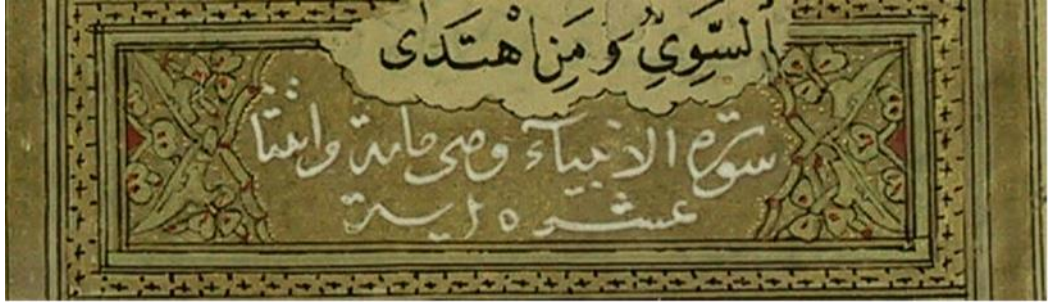 السَّوِيِّ وَمَنِ اهْتَدَى
سورة الانبياء وهى مائة واثنتا
عشرة اية